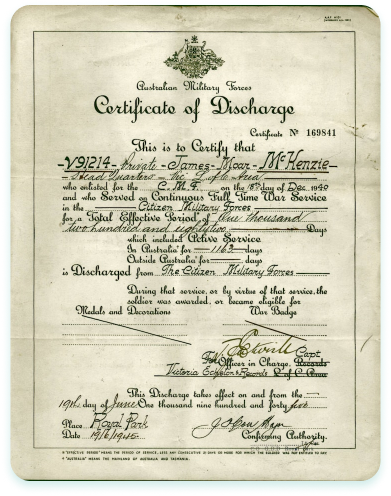 A.A.F. A121
Australian Military Forces
Certificate of Discharge
Certificate Nº 169841
This is to Certify that
V91214 - Private - James - Moar - McKenzie
Head Quarters - Vic L of C Area
who enlisted for the C.M.F. on the Dec 1940
and who Served on Continuous Full Time War Service
in the Citizen Military Forces
for a Total Effective Period* of One thousand
two hundred and eighty two Days
which included Active Service
In Australia† for 1163 Days
Outside Australia† for days
is Discharged from The Citizen Military Forces
During that service, or by virtue of that service, the
soldier was awarded, or became eligible for
Medals and Decorations War Badge
Capt
For Officer in Charge, Records
Victoria Echelon & Records L of C Area
This Discharge takes effect on and from the
19th day of June One thousand nine hundred and forty five
Place Royal Park
Date 19/6/1945 Confirming Authority.
* "EFFECTIVE PERIOD" MEANS TOTAL SERVICE, LESS ANY CONSECUTIVE 21 DAYS OR MORE FOR WHICH THE SOLDIER WAS NOT ENTITLED TO PAY
† "AUSTRALIA" MEANS THE MAINLAND OF AUSTRALIA AND TASMANIA.